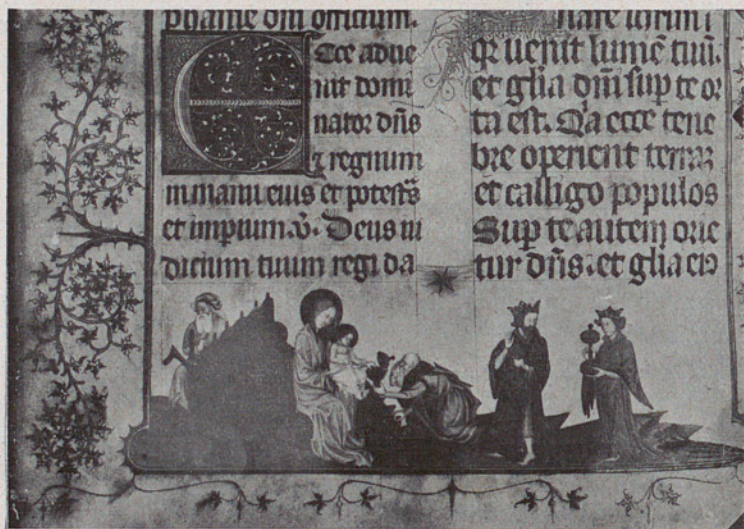 phanie dni officium.
Ecce adue
nit domi
nator dns
⁊ regnum
in manu eius et potestas
et impium. v. Deus iu
dicium tuum regi da
q̄ uenit lume tuū.
et glia dni sup te or
ta est. Q̄a ecce tene
bre operient terrā
et calligo populos
Sup te autem orie
tur dns. et glia eiꝰ